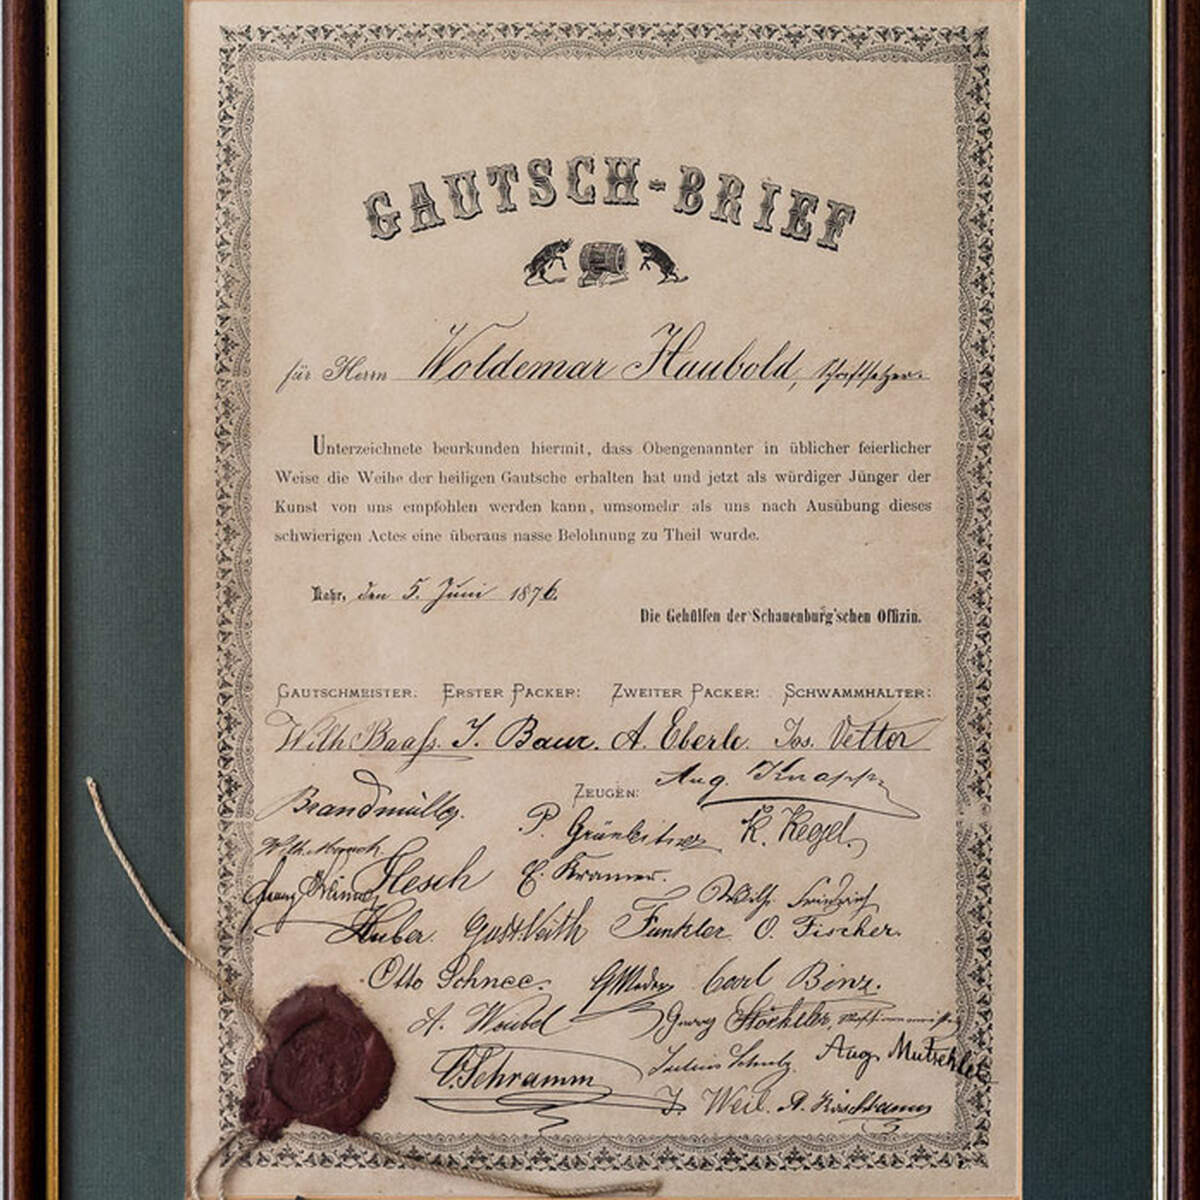 GAUTSCH-BRIEF
für Herrn Woldemar Haubold, Schriftsetzer.
Unterzeichnete beurkunden hiermit, dass Obengenannter in üblicher feierlicher
Weise die Weihe der heiligen Gautsche erhalten hat und jetzt als würdiger Jünger der
Kunst von uns empfohlen werden kann, umsomehr als uns nach Ausübung dieses
schwierigen Actes eine überaus nasse Belohnung zu Theil wurde.
Lahr, den 5. Juni 1876.
Die Gehülfen der Schauenburg'schen Offizin.
GAUTSCHMEISTER: ERSTER PACKER: ZWEITER PACKER: SCHWAMMHALTER:
Wilh Baass. J. Baur. A. Eberle. Jos. Vetter
Aug. Knapp
ZEUGEN:
Brandmüller. P. K. Kegel.
Flesch E. Kramer.
Wilh. Friedrich
Huber. Gust. Veith Funkler O. Fischer.
Otto Schnee. Carl Binz.
A. Georg
Julius Schulz. Aug. Mutschler
C. Schramm
J. Weil. A.